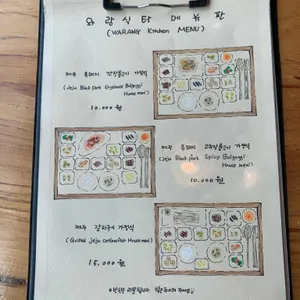 와랑식탁 메뉴판
(WARANG Kitchen MENU)
제주 흑돼지 간장불고기 가정식
(Jeju Black pork Soysauce Bulgogi
House meal)
10,000원
제주 흑돼지 고추장불고기 가정식
(Jeju Black pork Spicy Bulgogi
House meal)
10,000원
제주 갈치구이 가정식
(Grilled Jeju cutlassfish House meal)
15,000원